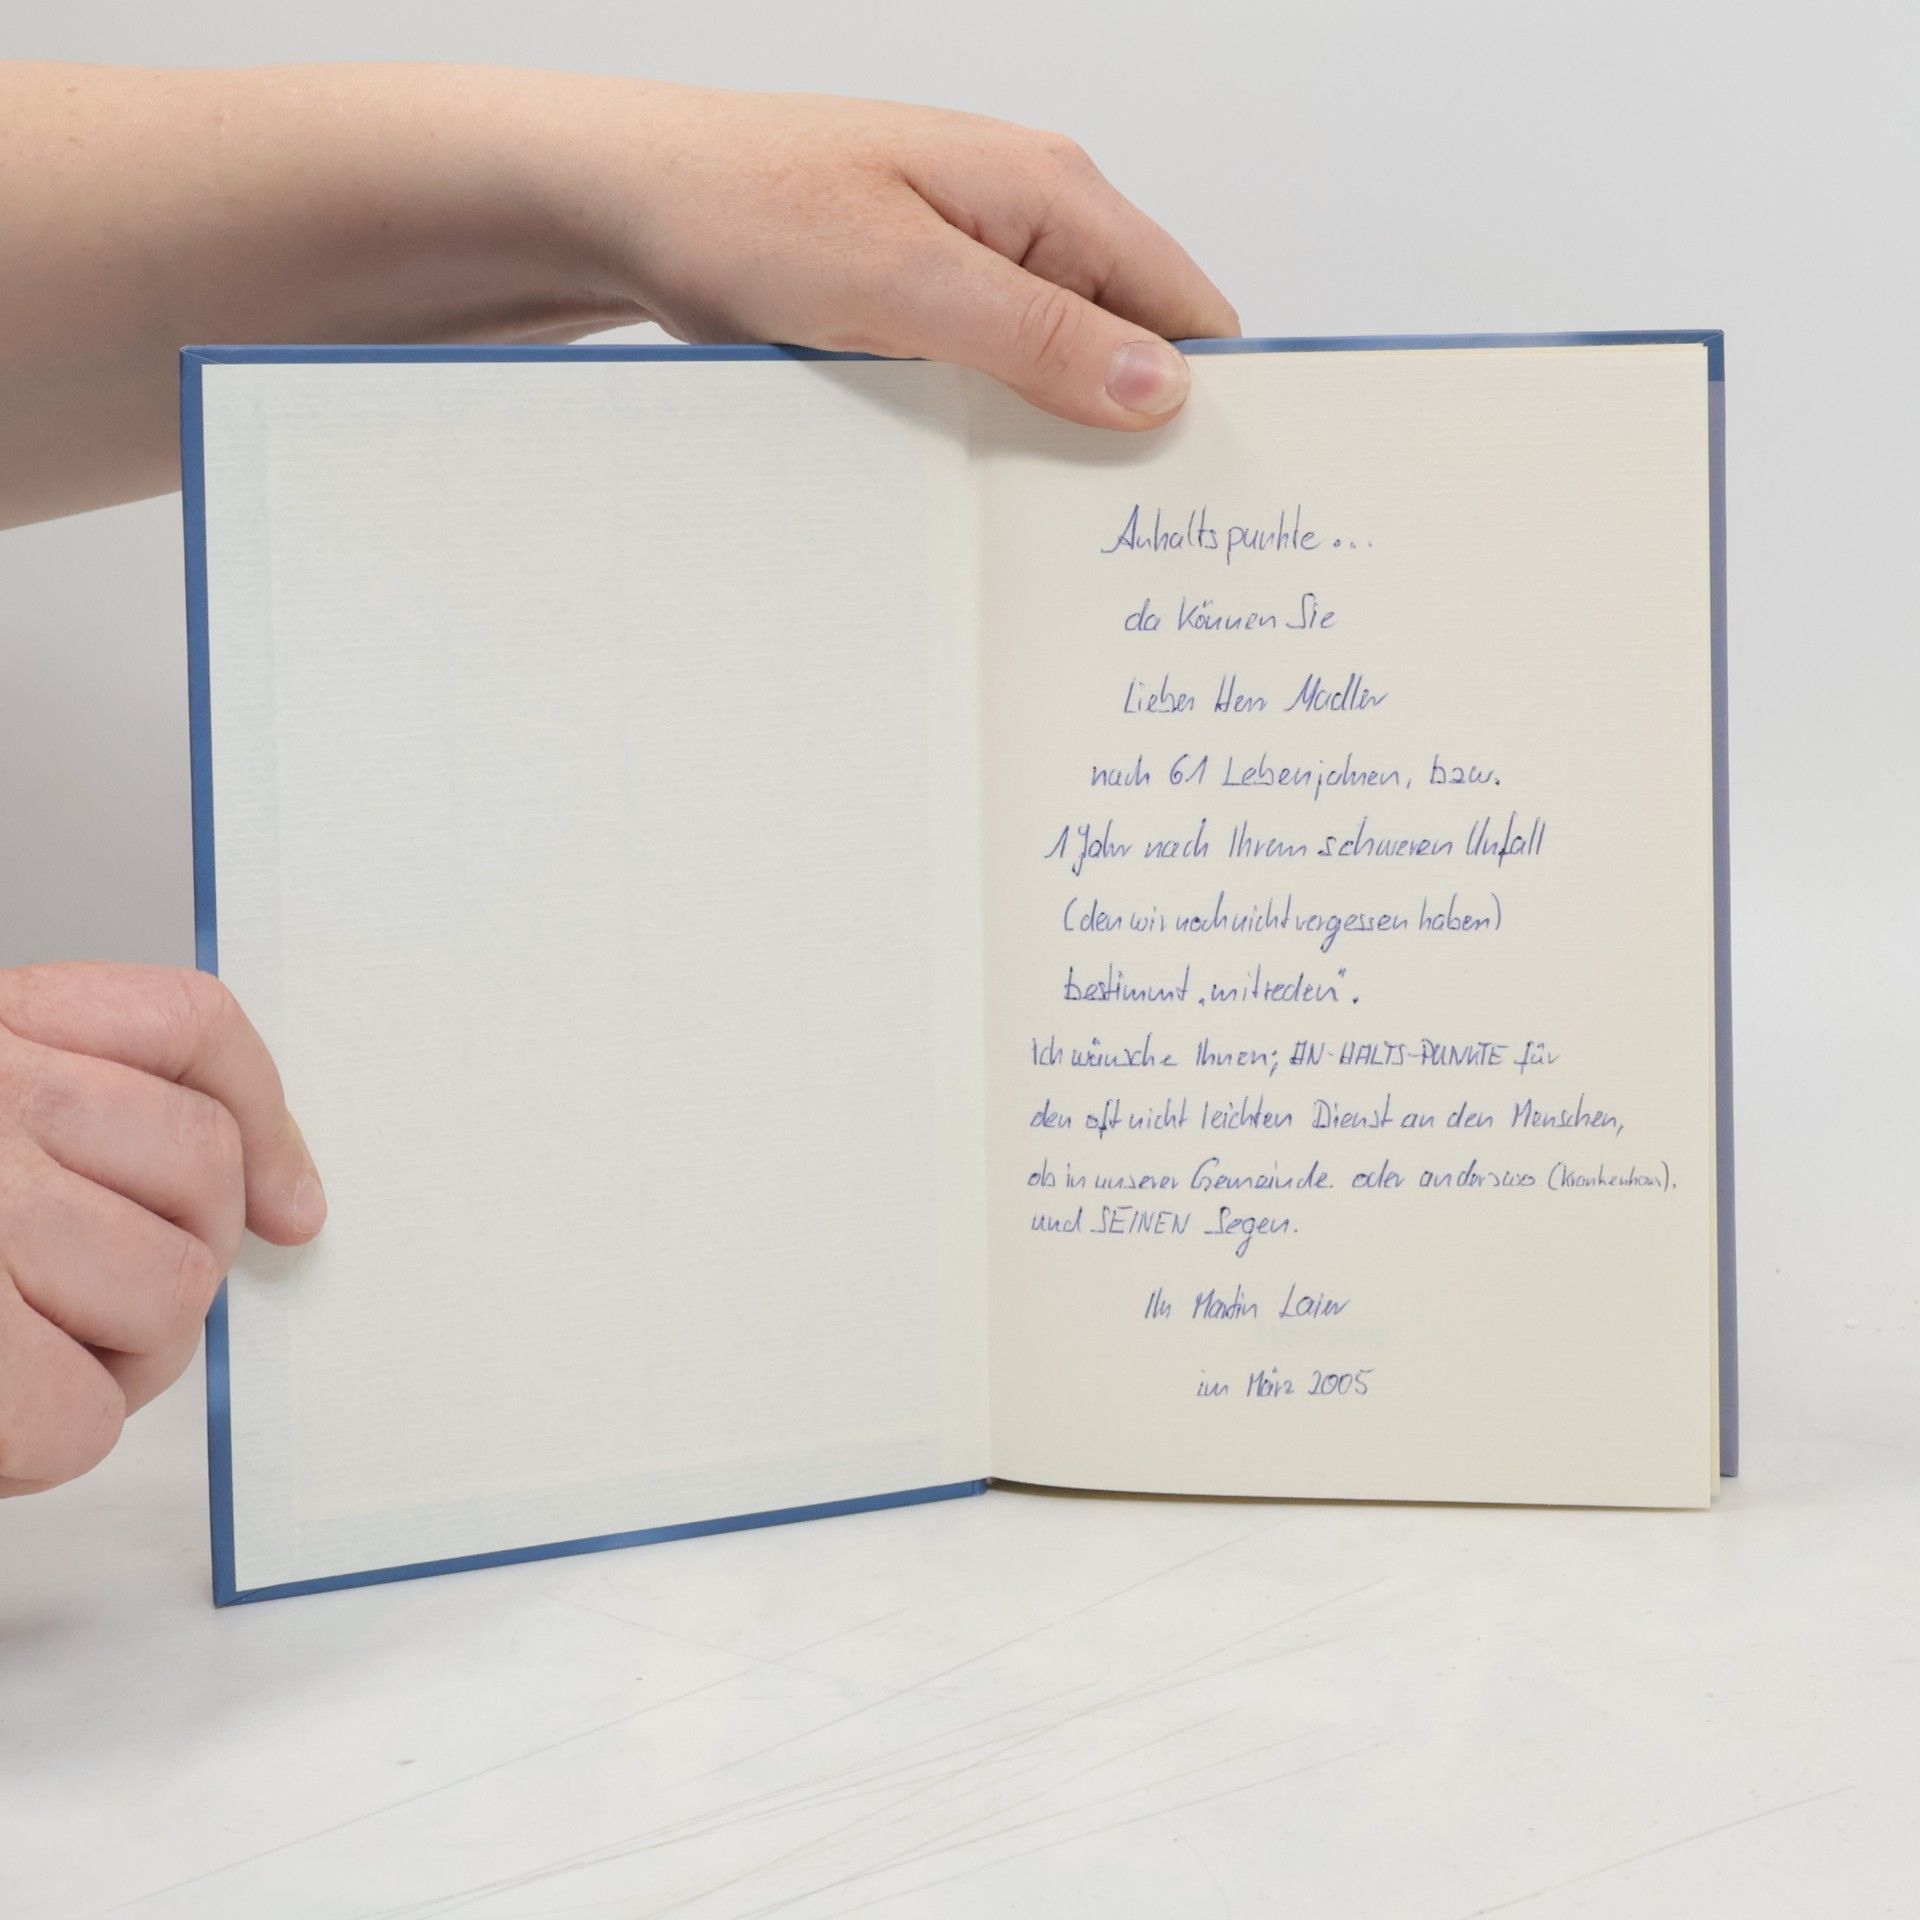 Anhaltspunkte...
da können Sie
Lieber Herr Madler
nach 61 Lebenjahren, bzw.
1 Jahr nach Ihrem schweren Unfall
(den wir noch nicht vergessen haben)
bestimmt „mitreden".
Ich wünsche Ihnen; AN-HALTS-PUNKTE für
den oft nicht leichten Dienst an den Menschen,
ob in unserer Gemeinde oder anderswo (Krankenhaus).
und SEINEN Segen.
Ihr Martin Laier
im März 2005